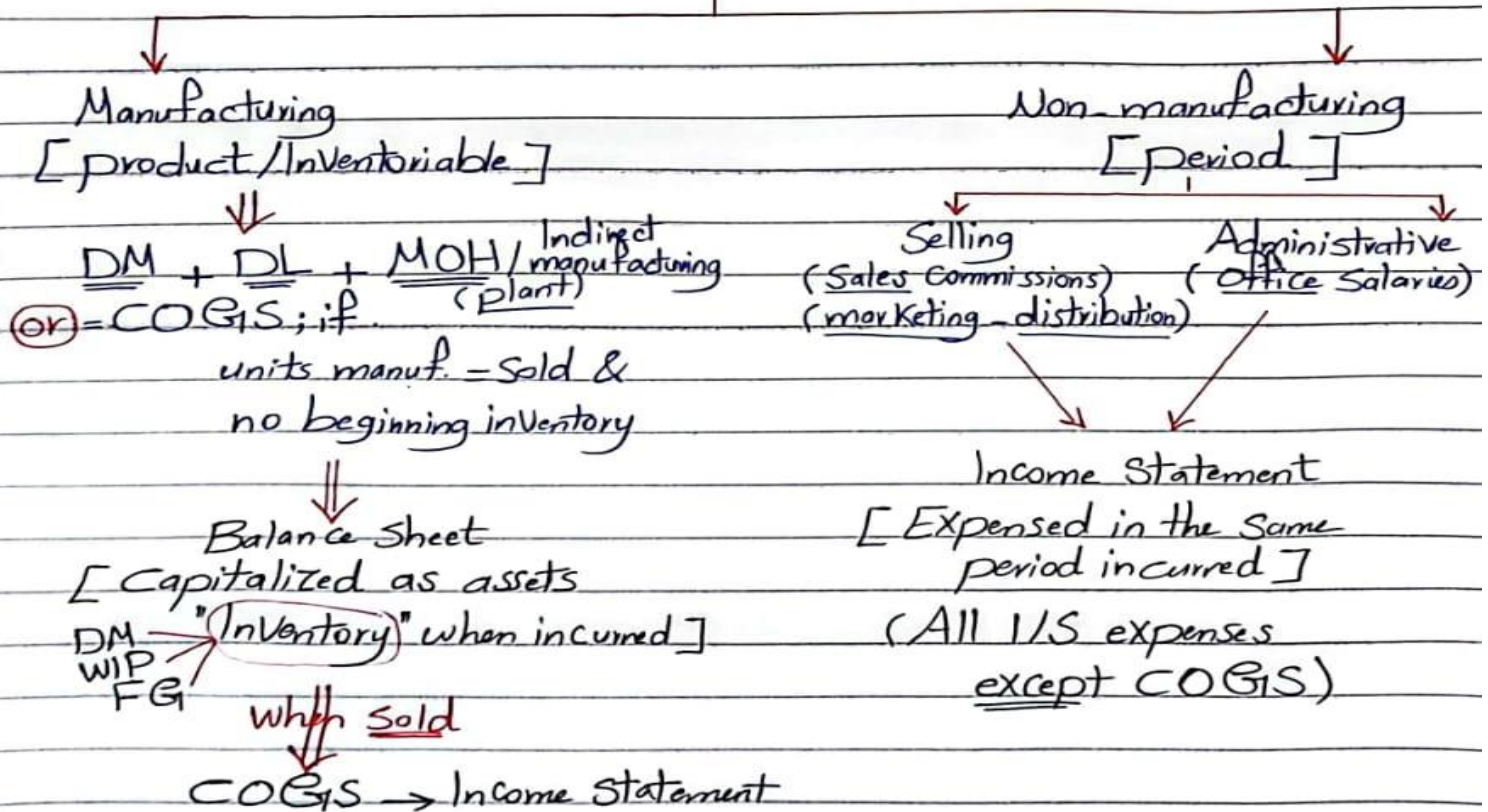 Manufacturing
[product/Inventoriable]
DM + DL + MOH/Indirect manufacturing
(plant)
or = COGS; if
units manuf. = Sold &
no beginning inventory
Balance Sheet
[Capitalized as assets
DM "Inventory" when incurred]
WIP
FG
when Sold
COGS → Income Statement
Non-manufacturing
[period]
Selling
(Sales Commissions)
(marketing - distribution)
Administrative
(Office Salaries)
Income Statement
[Expensed in the Same
period incurred]
(All I/S expenses
except COGS)